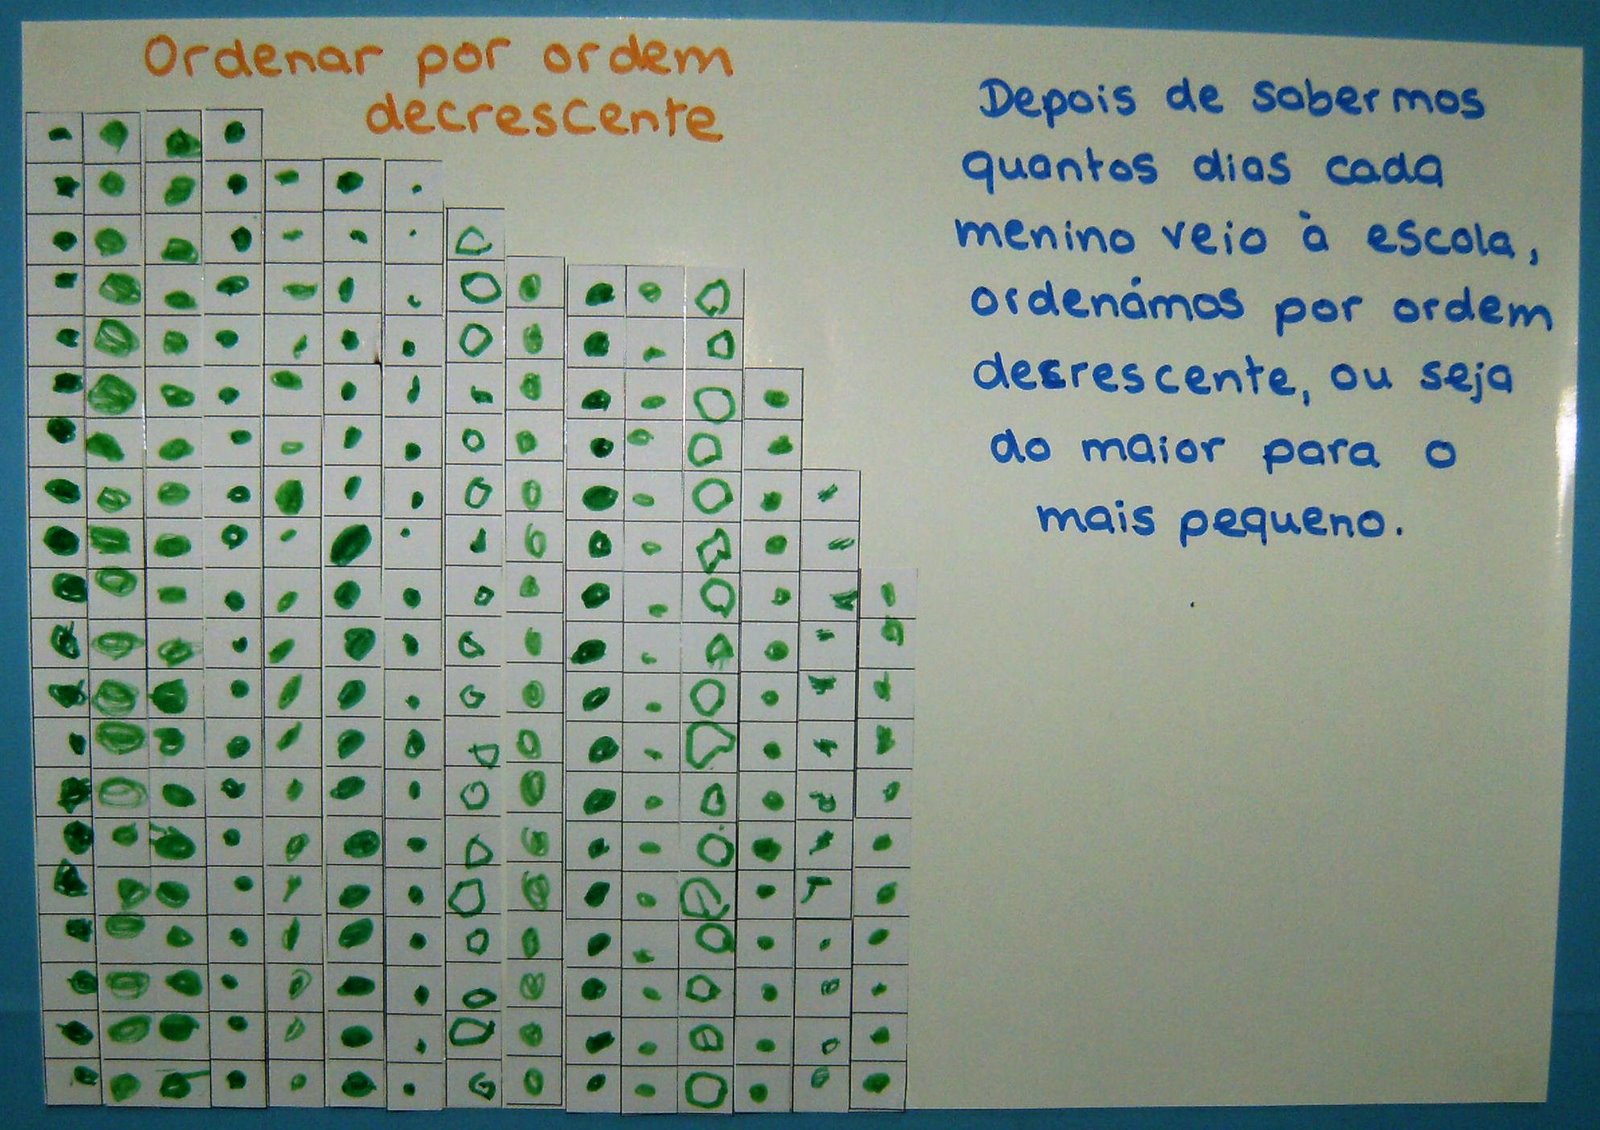 Ordenar por ordem
decrescente
Depois de sabermos
quantos dias cada
menino veio à escola,
ordenámos por ordem
decrescente, ou seja
do maior para o
mais pequeno.